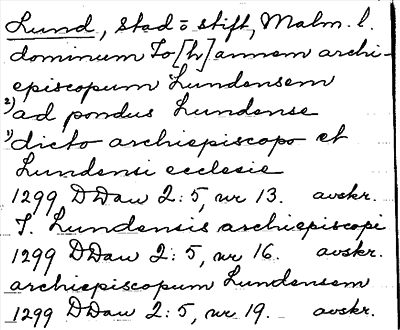 Lund, stad o stift, Malm. l.
dominum Jo[h]annem archi-
episcopum Lundensem
2) ad pondus Lundense
1) dicto archiepiscopo et
Lundensi ecclesie
1299 DDan 2:5, nr 13. avskr.
J. Lundensis archiepiscopi
1299 DDan 2:5, nr 16. avskr.
archiepiscopum Lundensem
1299 DDan 2:5, nr 19. avskr.